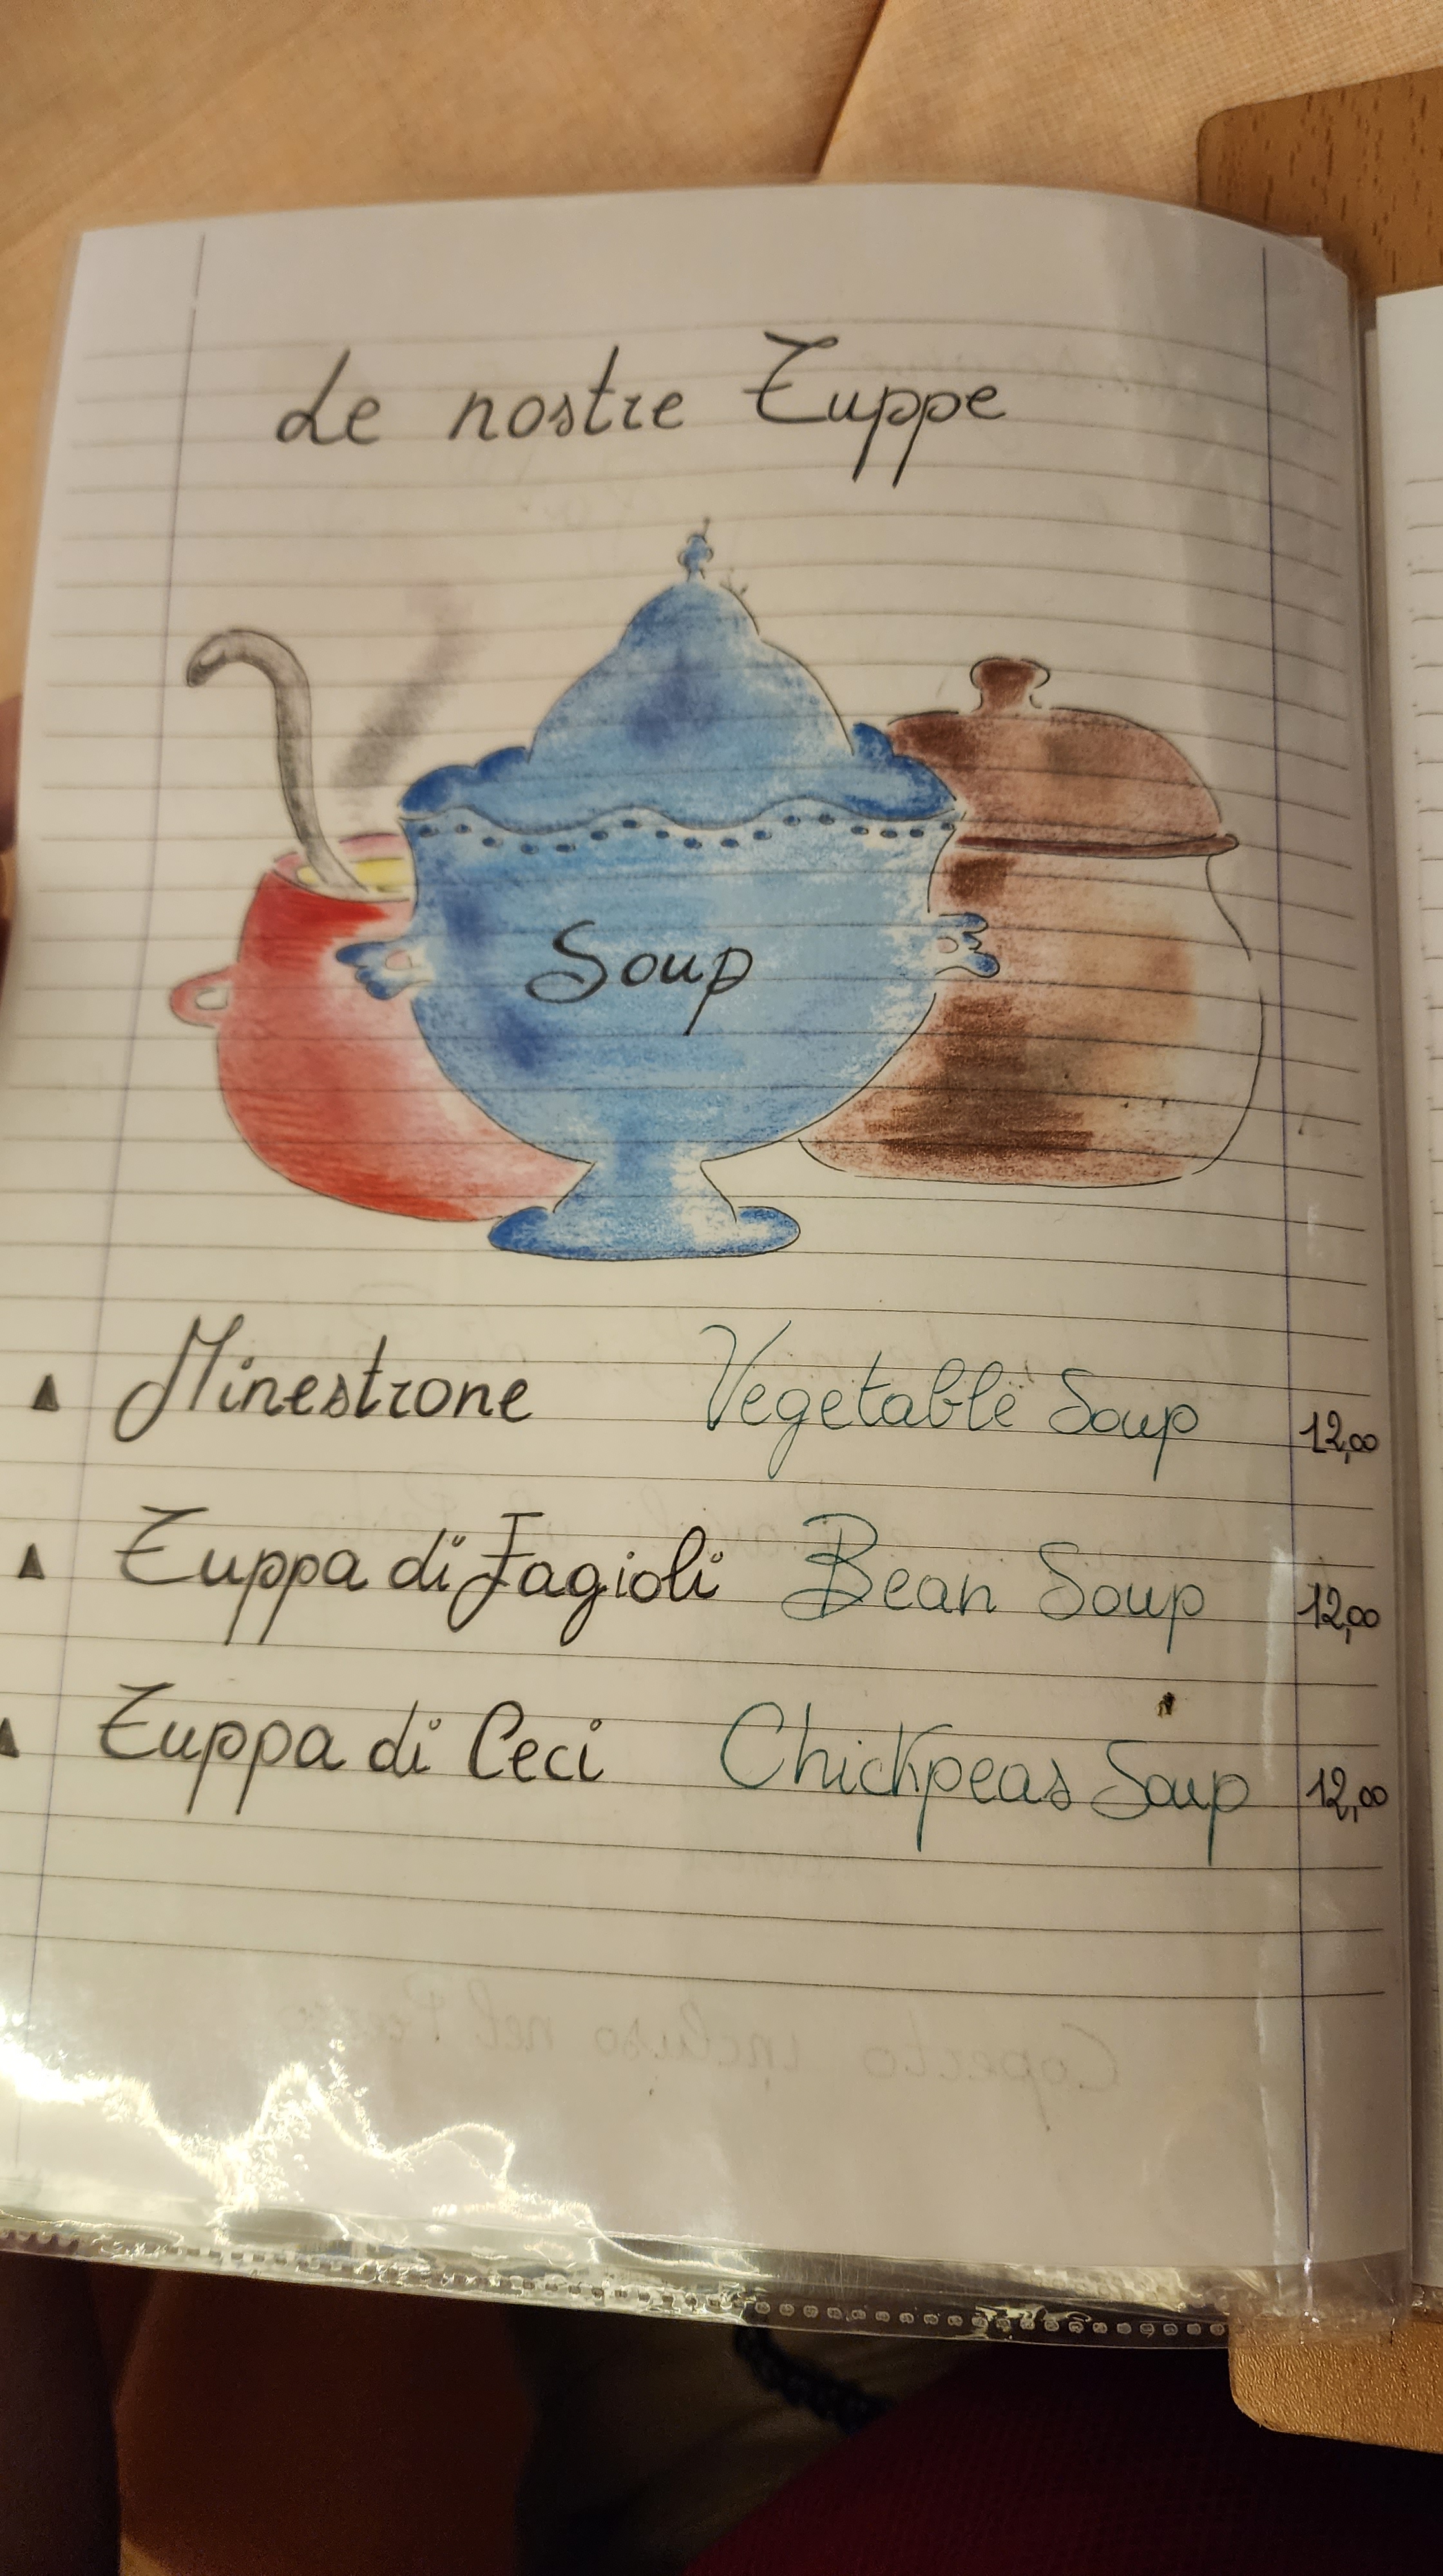 Le nostre Zuppe
Soup
Minestrone Vegetable Soup 12,00
Zuppa di Fagioli Bean Soup 12,00
Zuppa di Ceci Chickpeas Soup 12,00
Coperto incluso nel